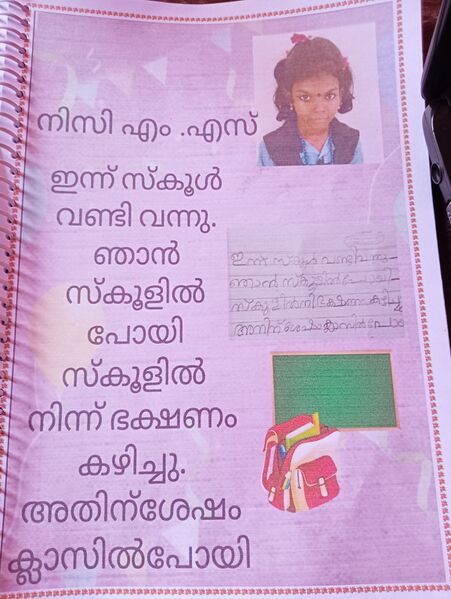 നിസി എം .എസ്
ഇന്ന് സ്കൂൾ
വണ്ടി വന്നു.
ഞാൻ
സ്കൂളിൽ
പോയി
സ്കൂളിൽ
നിന്ന് ഭക്ഷണം
കഴിച്ചു.
അതിന്ശേഷം
ക്ലാസിൽപോയി
ഇന്ന് സ്കൂൾ വണ്ടിവന്നു
ഞാൻ സ്കൂളിൽ പോയി
സ്കൂളിൽനി ഭക്ഷണം കഴിച്ചു
അതിന് ശേഷം ക്ലാസിൽപോ